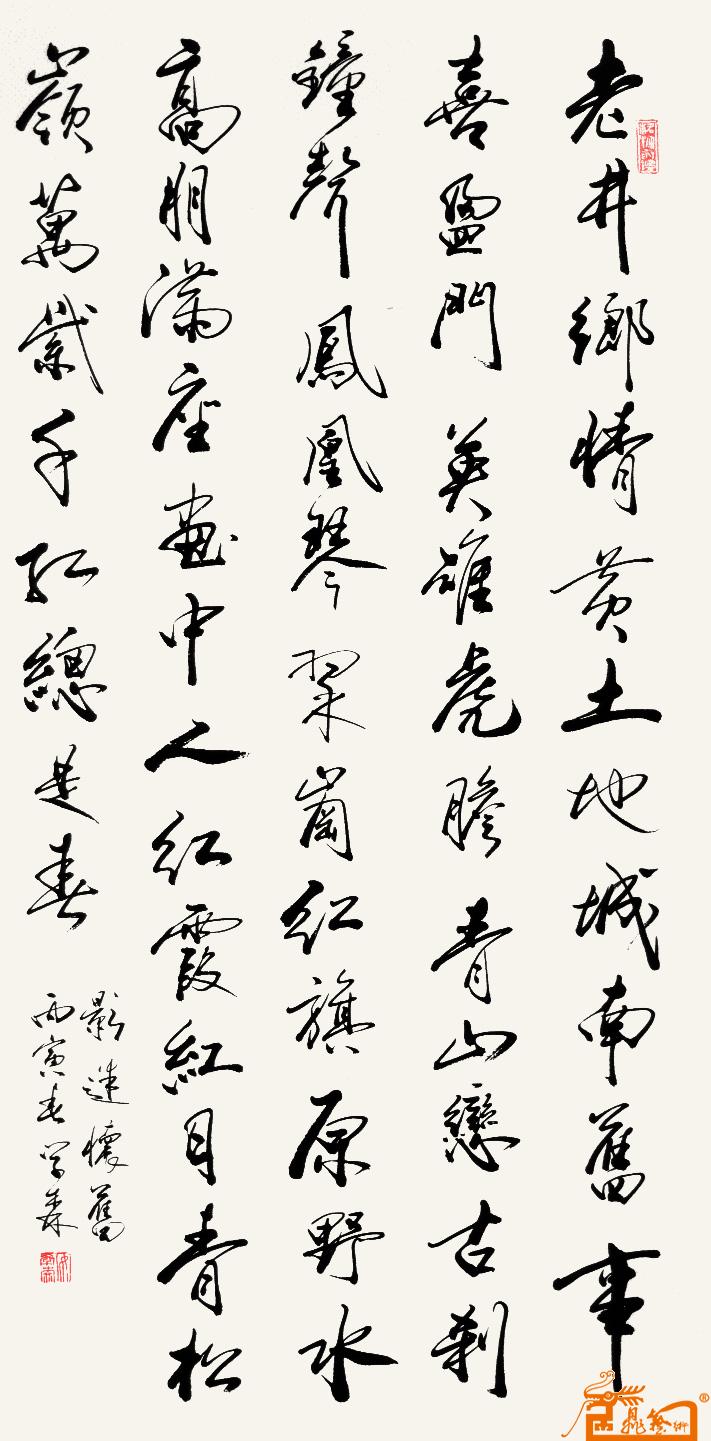 老井鄉情黄土地城南舊事
喜盈門英雄虎膽青山戀古刹
鐘聲鳳凰琴翠崗紅旗原野水
高朋滿座畫中人紅霞紅日青松
嶺萬紫千紅總是春
影迷懷舊
丙寅春学森